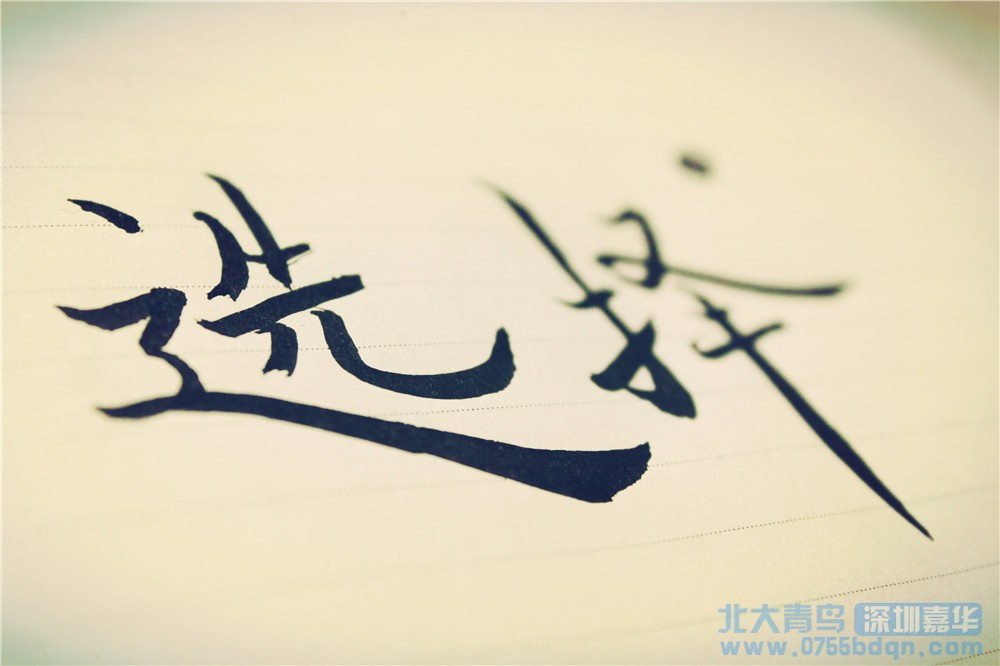 选择
北大青鸟 深圳嘉华
www.0755bdqn.com